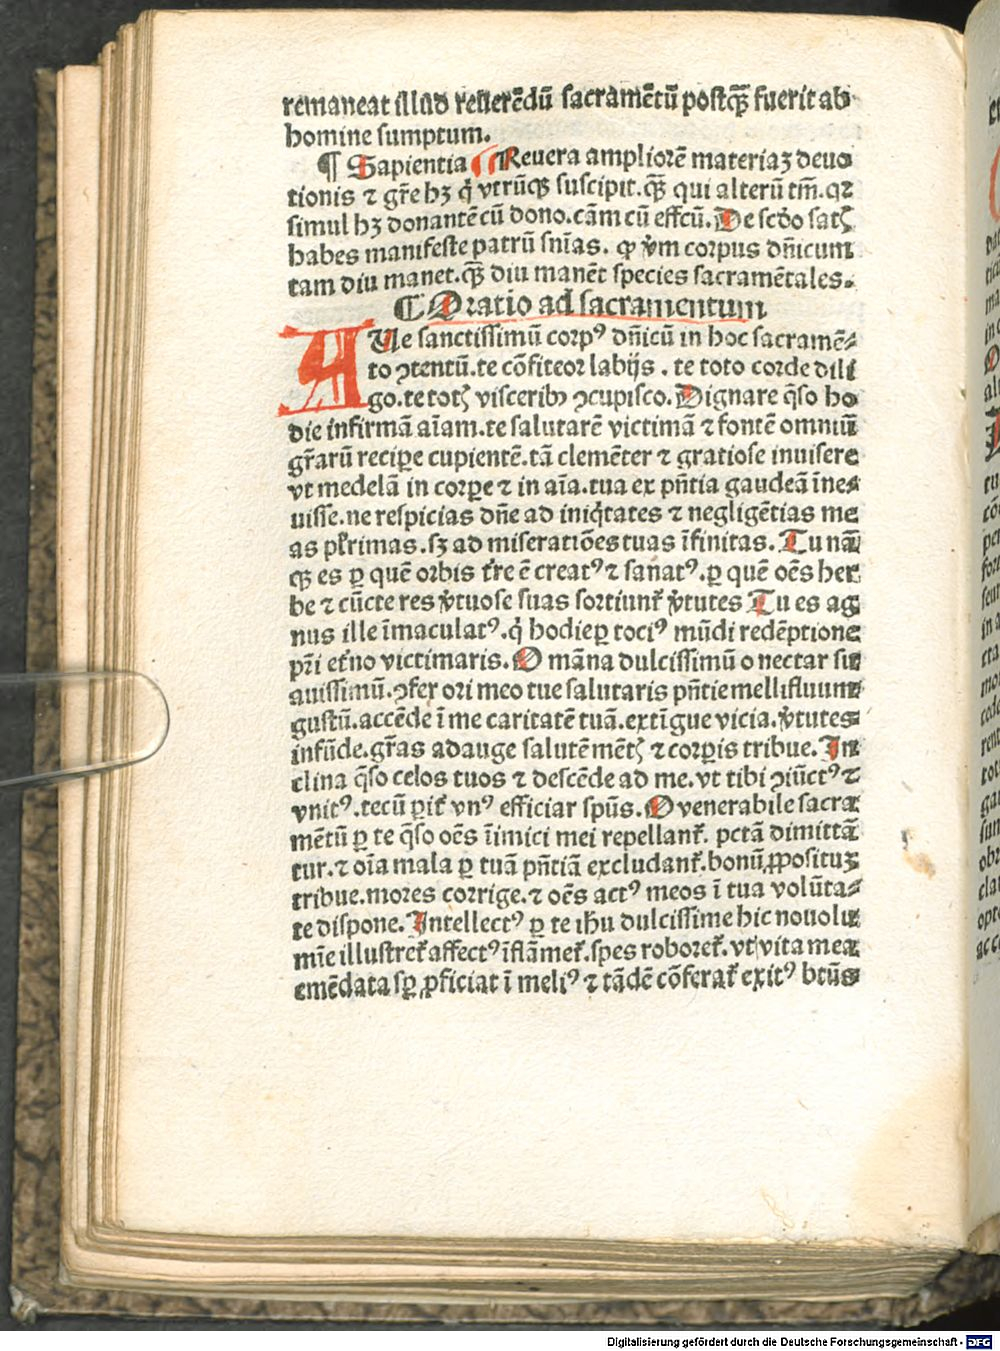 remaneat illud reuerēdū sacramētū postq̄ꝫ fuerit ab
homine sumptum.
¶ Sapientia ¶ Reuera ampliorē materiaꝫ deuo
tionis ⁊ gr̄e hꝫ q̇ vtrūqꝫ suscipit.q̄ꝫ qui alterū tm̄.qꝛ
simul hꝫ donantē cū dono.cām cū effcū. De scḋo satꝭ
habes manifeste patrū sn̄ias. ꝙ v̇m corpus dn̄icum
tam diu manet.q̄ꝫ diu manēt species sacramētales.
¶ Oratio ad sacramentum
AUe sanctissimū corpꝰ dn̄icū in hoc sacramē⸗
to ꝯtentū.te cōfiteor labijs . te toto corde dili
go.te totꝭ visceribꝰ ꝯcupisco. Dignare q̄so ho
die infirmā aīam.te salutarē victimā ⁊ fontē omniū
gr̄arū recipe cupientē.tā clemēter ⁊ gratiose inuisere
vt medelā in corpe ⁊ in aīa.tua ex pn̄tia gaudeā īne⸗
uisse.ne respicias dn̄e ad iniq̇tates ⁊ negligētias me
as pl̄rimas.sꝫ ad miseratiōes tuas īfinitas. Tu nā
qꝫ es ꝑ quē orbis tr̄re ē creatꝰ ⁊ sanatꝰ.ꝑ quē oēs her
be ⁊ cūcte res v̇tuose suas sortiunt̄ v̇tutes Tu es ag
nus ille īmaculatꝰ.q̇ hodie ꝑ tociꝰ mūdi redēptione
pr̄i et̄no victimaris. O māna dulcissimū o nectar su
auissimū.ꝯfer ori meo tue salutaris pn̄tie mellifluum
gustū.accēde ī me caritatē tuā.extīgue vicia.v̇tutes
infūde.gr̄as adauge salutē mētꝭ ⁊ corꝑis tribue. In
clina q̄so celos tuos ⁊ descēde ad me.vt tibi ꝯiūctꝰ ⁊
vnitꝰ.tecū ꝑit̄ vnꝰ efficiar spūs. O venerabile sacra
mētū ꝑ te q̄so oēs īimici mei repellant̄. pctā dimittā
tur.⁊ oīa mala ꝑ tuā pn̄tiā excludant̄.bonū ꝓpositūꝫ
tribue.mores corrige.⁊ oēs actꝰ meos ī tua volūta⸗
te dispone. Intellectꝰ ꝑ te ihu dulcissime hic nouo lu
mīe illustret̄ affectꝰ īflāmet̄.spes roboret̄. vt vita mea
emēdata sꝑ ꝓficiat ī meliꝰ ⁊ tādē cōferat̄ exitꝰ btūs
Digitalisierung gefördert durch die Deutsche Forschungsgemeinschaft - DFG